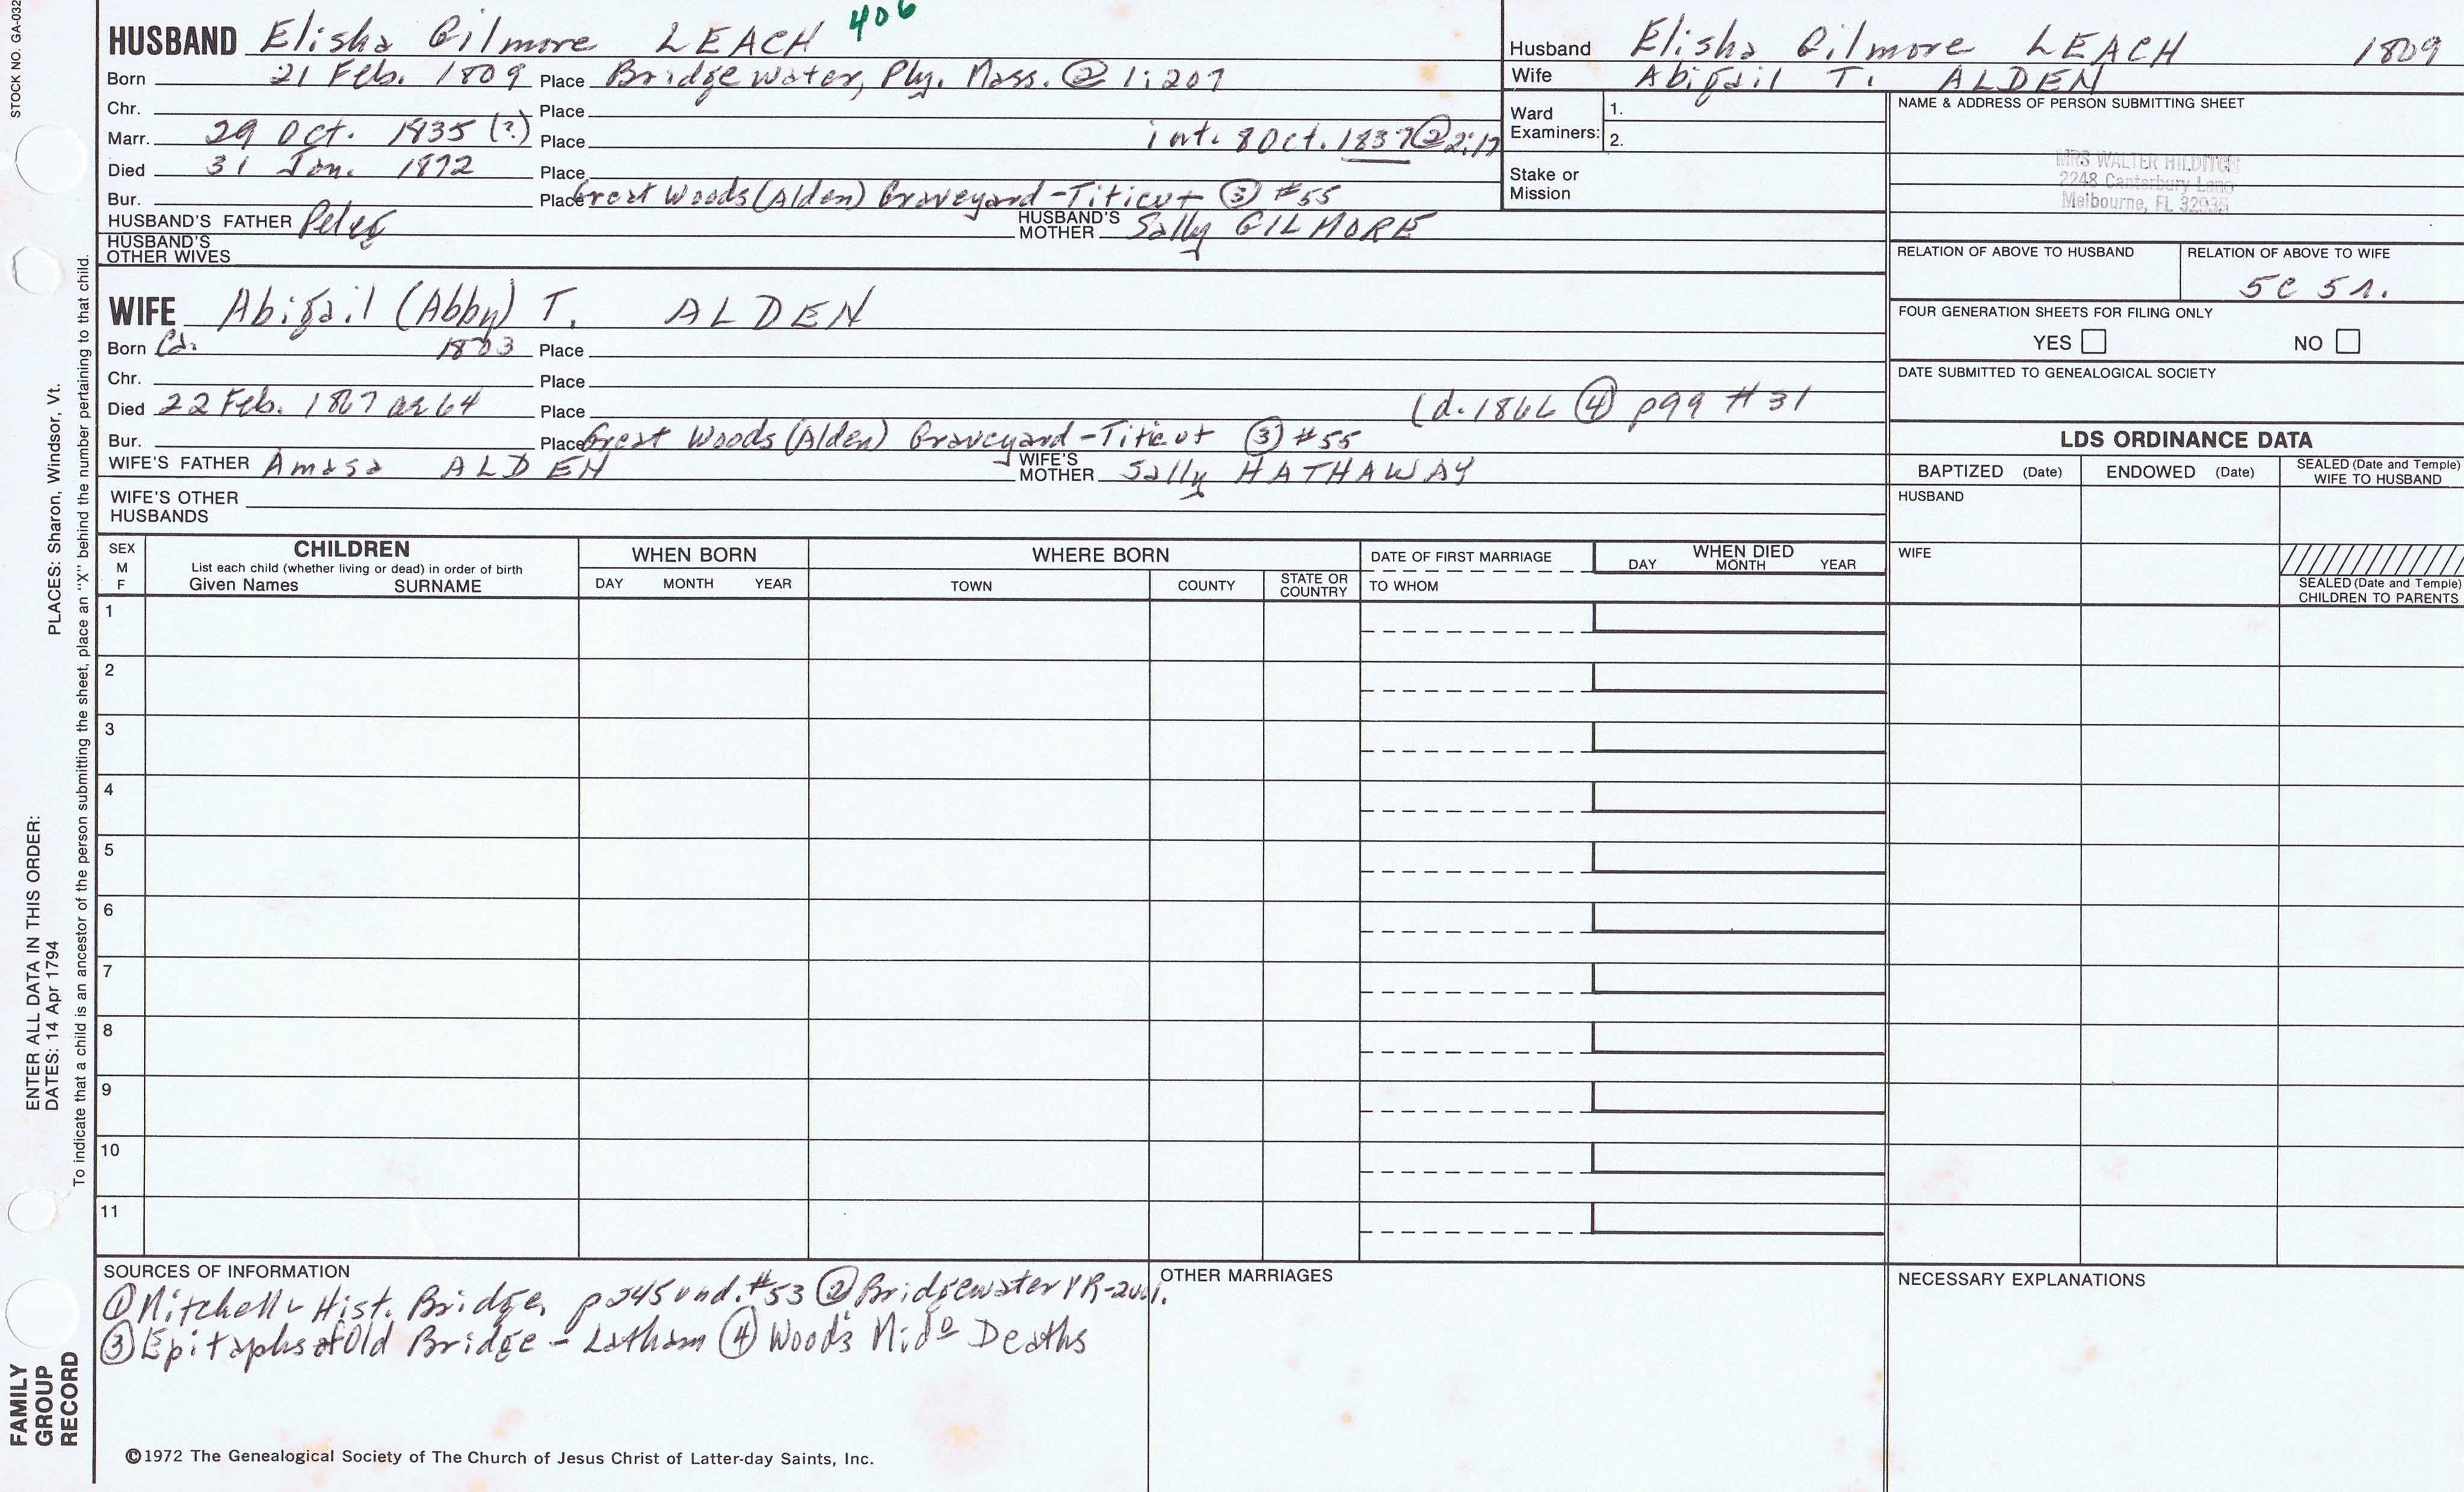 STOCK NO. GA-032
HUSBAND Elisha Gilmore LEACH 406
Born 21 Feb. 1809 Place Bridgewater, Ply. Mass. ② 1:207
Chr. Place
Marr. 29 Oct. 1835 (?) Place int. 8 Oct. 1837 ② 2:
Died 31 Jan. 1872 Place
Bur. Place Great Woods (Alden) Graveyard - Titicut ③ #55
HUSBAND'S FATHER Peter HUSBAND'S MOTHER Sally GILMORE
HUSBAND'S OTHER WIVES
WIFE Abigail (Abby) T. ALDEN
Born Ca. 1803 Place
Chr. Place
Died 22 Feb. 1867 ae 64 Place (d. 1866 ④ p99 #31
Bur. Place Great Woods (Alden) Graveyard - Titicut ③ #55
WIFE'S FATHER Amasa ALDEN WIFE'S MOTHER Sally HATHAWAY
WIFE'S OTHER HUSBANDS
Husband Elisha Gilmore LEACH 1809
Wife Abigail T. ALDEN
Ward Examiners: 1.
2.
Stake or Mission
NAME & ADDRESS OF PERSON SUBMITTING SHEET
MRS WALTER HILDITCH
2248 Canterbury Lane
Melbourne, FL 32935
RELATION OF ABOVE TO HUSBAND
RELATION OF ABOVE TO WIFE
5C 5r.
FOUR GENERATION SHEETS FOR FILING ONLY
YES NO
DATE SUBMITTED TO GENEALOGICAL SOCIETY
LDS ORDINANCE DATA
BAPTIZED (Date) ENDOWED (Date) SEALED (Date and Temple) WIFE TO HUSBAND
HUSBAND
WIFE
SEALED (Date and Temple) CHILDREN TO PARENTS
SEX M F
CHILDREN
List each child (whether living or dead) in order of birth
Given Names SURNAME
WHEN BORN
DAY MONTH YEAR
WHERE BORN
TOWN COUNTY STATE OR COUNTRY
DATE OF FIRST MARRIAGE
TO WHOM
WHEN DIED
DAY MONTH YEAR
1
2
3
4
5
6
7
8
9
10
11
SOURCES OF INFORMATION
① Mitchell - Hist. Bridge, p245 und. #53 ② Bridgewater VR-2vol.
③ Epitaphs of Old Bridge - Latham ④ Wood's Mido Deaths
OTHER MARRIAGES
NECESSARY EXPLANATIONS
©1972 The Genealogical Society of The Church of Jesus Christ of Latter-day Saints, Inc.
FAMILY GROUP RECORD
ENTER ALL DATA IN THIS ORDER:
DATES: 14 Apr 1794
PLACES: Sharon, Windsor, Vt.
To indicate that a child is an ancestor of the person submitting the sheet, place an "X" behind the number pertaining to that child.